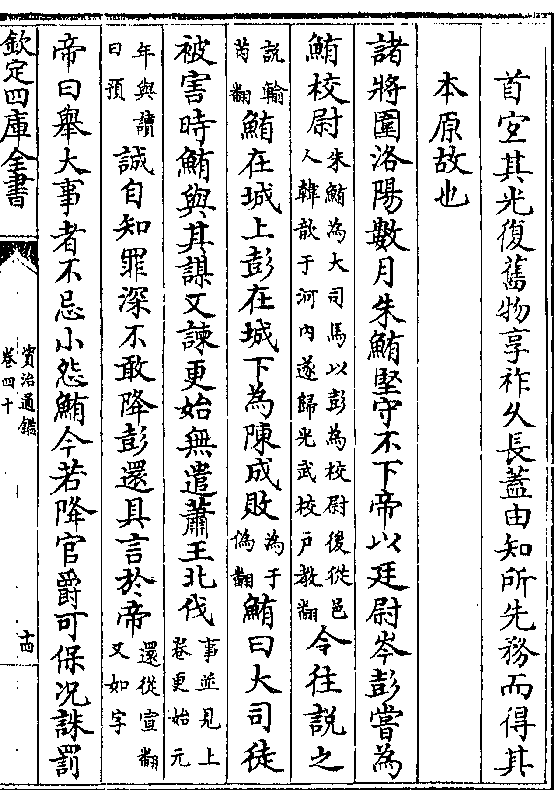 首宜其光復舊物享祚久長蓋由知所先務而得其
本原故也
諸將圍洛陽數月朱鮪堅守不下帝以廷尉岑彭嘗為
鮪校尉朱鮪為大司馬以彭為校尉後從邑
人韓歆于河內遂歸光武校户教翻令往說之
說輸
芮翻鮪在城上彭在城下為陳成敗為于
偽翻鮪曰大司徒
被害時鮪與其謀又諫更始無遣蕭王北伐事並見上
卷更始元
年與讀
曰預誠自知罪深不敢降彭還具言於帝還從宣翻
又如字
帝曰舉大事者不忌小怨鮪今若降官爵可保况誅罰
欽定四庫全書
資治通鑑
卷四十
十四